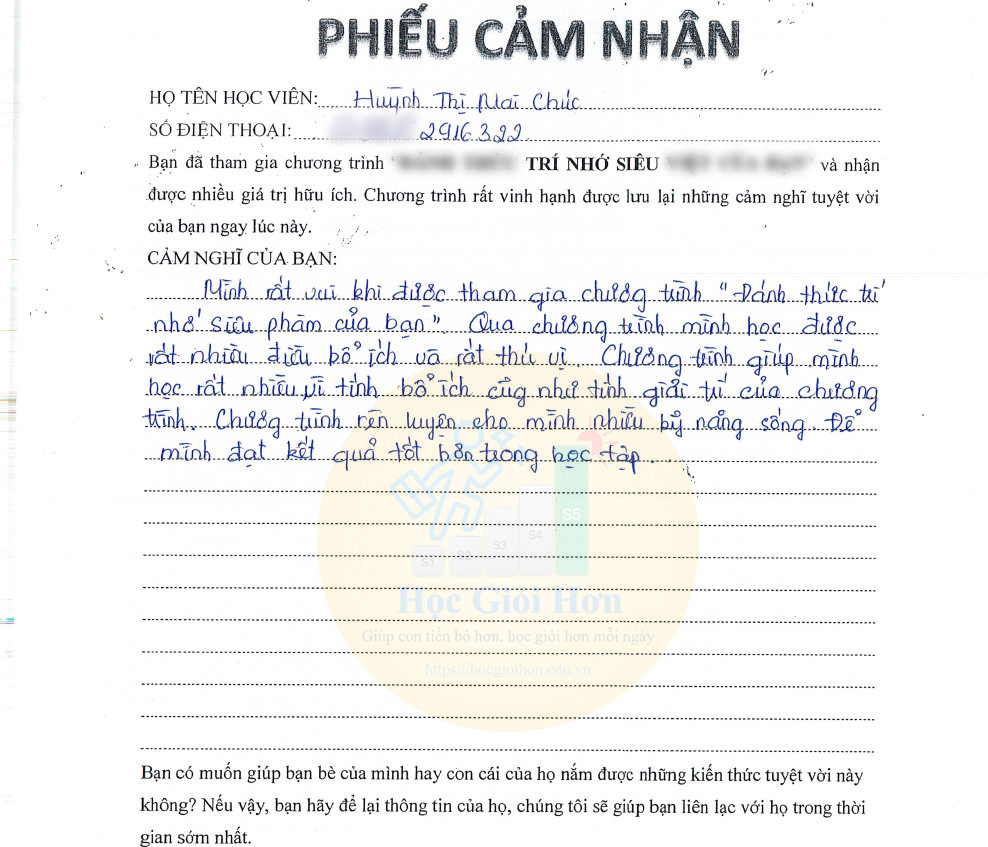 PHIẾU CẢM NHẬN
HỌ TÊN HỌC VIÊN: Huỳnh Thị Mai Chúc
SỐ ĐIỆN THOẠI: 2916322
Bạn đã tham gia chương trình TRÍ NHỚ SIÊU và nhận
được nhiều giá trị hữu ích. Chương trình rất vinh hạnh được lưu lại những cảm nghĩ tuyệt vời
của bạn ngay lúc này.
CẢM NGHĨ CỦA BẠN:
Mình rất vui khi được tham gia chương trình "Đánh thức trí
nhớ siêu phàm của bạn". Qua chương trình mình học được
rất nhiều điều bổ ích và rất thú vị. Chương trình giúp mình
học rất nhiều vì tính bổ ích cũg như tính giải trí của chương
trình. Chương trình rèn luyện cho mình nhiều kỹ năng sống. Để
mình đạt kết quả tốt hơn trong học tập.
S1 S2 S3 S4 S5
Học Giỏi Hơn
Giúp con tiến bộ hơn, học giỏi hơn mỗi ngày
https://hocgioihon.edu.vn
Bạn có muốn giúp bạn bè của mình hay con cái của họ nắm được những kiến thức tuyệt vời này
không? Nếu vậy, bạn hãy để lại thông tin của họ, chúng tôi sẽ giúp bạn liên lạc với họ trong thời
gian sớm nhất.